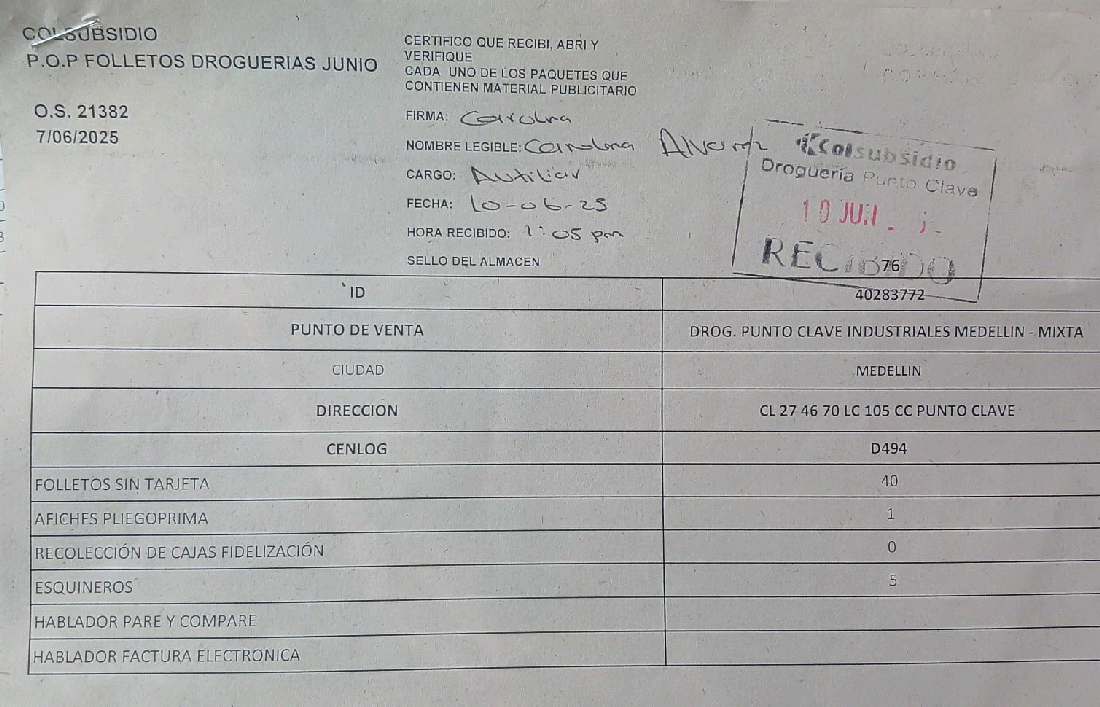 COLSUBSIDIO
P.O.P FOLLETOS DROGUERIAS JUNIO
O.S. 21382
7/06/2025
CERTIFICO QUE RECIBI, ABRI Y
VERIFIQUE
CADA UNO DE LOS PAQUETES QUE
CONTIENEN MATERIAL PUBLICITARIO
FIRMA: Carolina
NOMBRE LEGIBLE: Carolina Alvarez
CARGO: Auxiliar
FECHA: 10-06-25
HORA RECIBIDO: 1:05 pm
SELLO DEL ALMACEN
Colsubsidio
Droguería Punto Clave
10 JUN
RECIBIDO
76
ID 40283772
PUNTO DE VENTA DROG. PUNTO CLAVE INDUSTRIALES MEDELLIN - MIXTA
CIUDAD MEDELLIN
DIRECCION CL 27 46 70 LC 105 CC PUNTO CLAVE
CENLOG D494
FOLLETOS SIN TARJETA 40
AFICHES PLIEGOPRIMA 1
RECOLECCIÓN DE CAJAS FIDELIZACIÓN 0
ESQUINEROS 5
HABLADOR PARE Y COMPARE
HABLADOR FACTURA ELECTRONICA